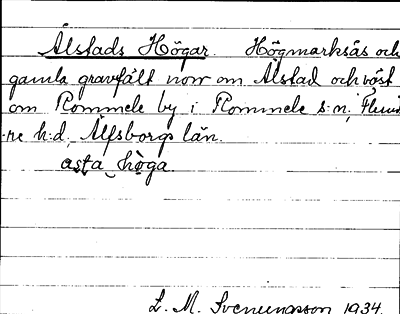 Ålstads Högar. Högmarksås och
gamla gravfält norr om Ålstad och väst
om Rommele by i Rommele s:n, Flund
-re h:d, Älfsborgs län.
asta höga.
L. M. Svenungsson 1934.